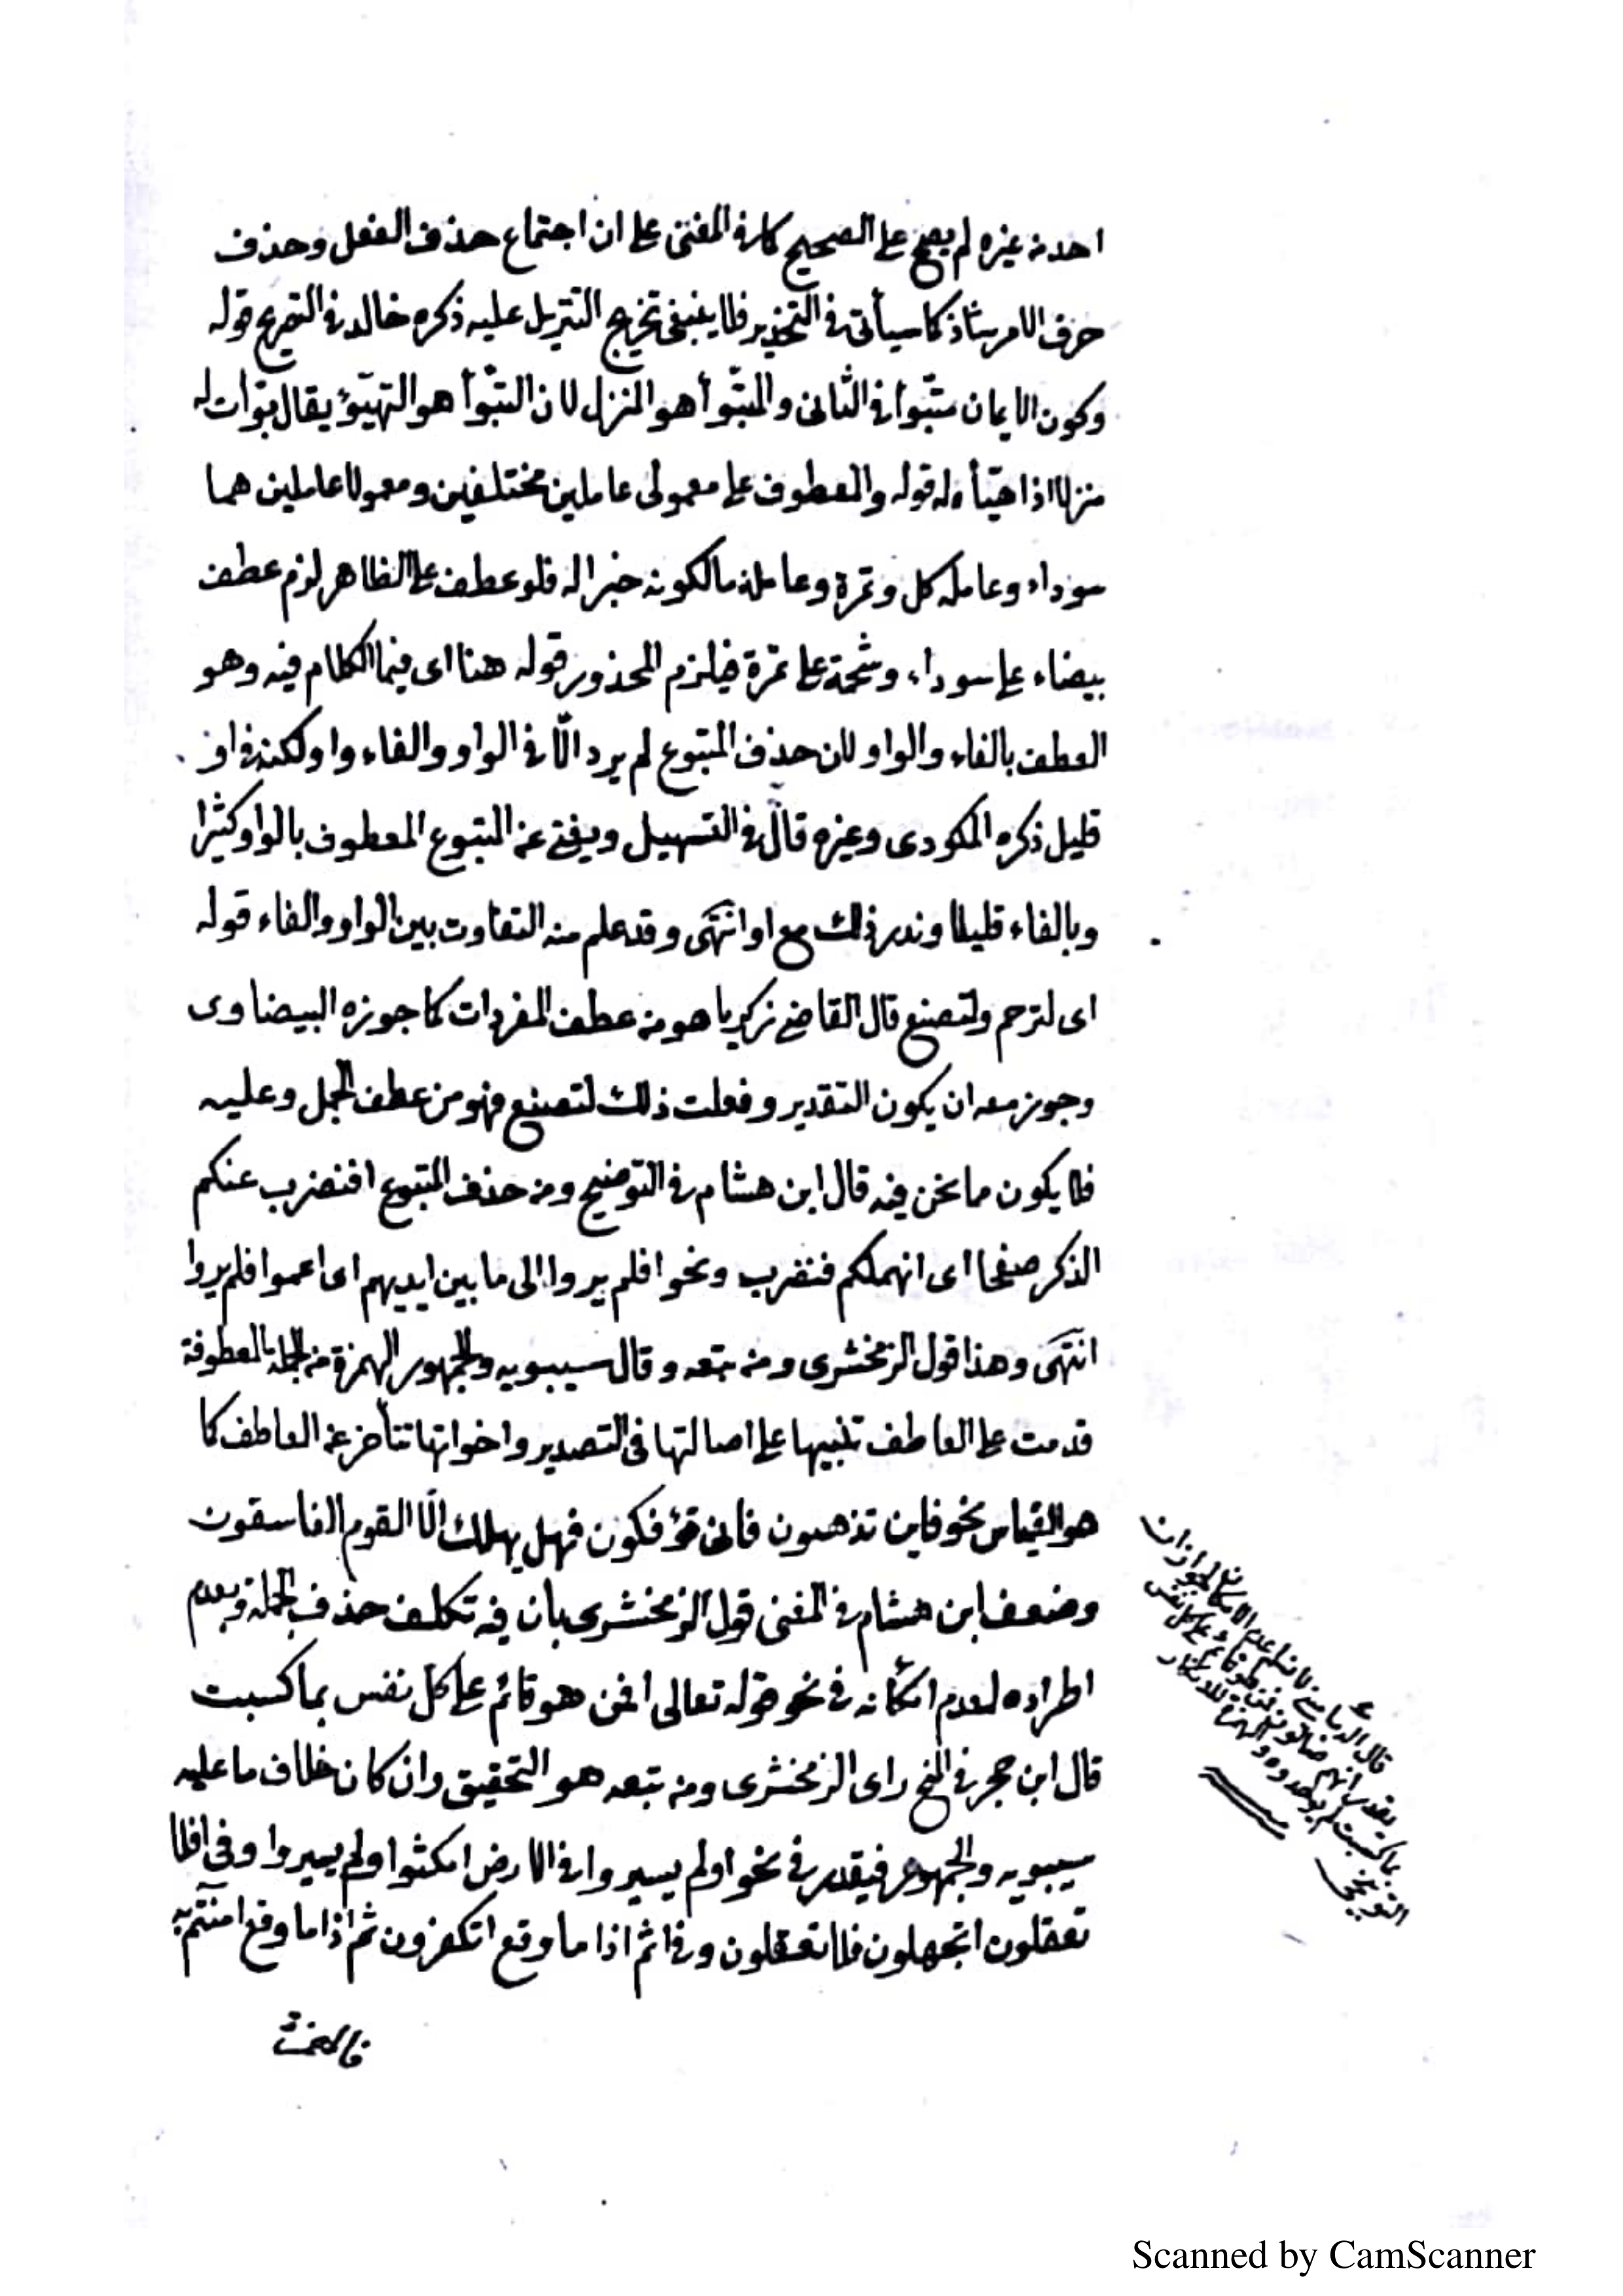 احد من غيره لم يصح على الصحيح كما في المغني على ان اجتماع حذف الفعل وحذف
حرف الامر شاذ كما سيأتي في التحذير فلا ينبغي تخريج التنزيل عليه ذكره خالد في التصريح قوله
وكون الايمان متبوأ في الثاني والمتبوأ هو المنزل لان التبوأ هو التهيؤ يقال بوات له
منزلا اذا هيأ له قوله والعطوف على معمولي عاملين مختلفين ومعمولا عاملين هما
سوداء وعامله كل وتمرة وعامله ما لكونه خبرا له فلو عطف على الظاهر لزم عطف
بيضاء على سوداء وشحمة على تمرة فيلزم المحذور قوله هنا اى فيما الكلام فيه وهو
العطف بالفاء والواو لان حذف المتبوع لم يرد الّا في الواو والفاء واو لكنه في او
قليل ذكره المكودى وغيره قال في التسهيل ويغني عن المتبوع المعطوف بالواو كثيرا
وبالفاء قليلا وندر ذلك مع او انتهى وقد علم منه التفاوت بين الواو والفاء قوله
اى لترحم ولتصنع قال القاضي زكريا هو من عطف المفردات كما جوزه البيضاوى
وجوز معه ان يكون التقدير وفعلت ذلك لتصنع فهو من عطف الجمل وعليه
فلا يكون مما نحن فيه قال ابن هشام في التوضيح ومن حذف المتبوع افنضرب عنكم
الذكر صفحا اى انهملكم فنضرب ونحو افلم يروا الى ما بين ايديهم اى اعموا فلم يروا
انتهى وهذا قول الزمخشرى ومن تبعه وقال سيبويه والجمهور الهمزة من الجملة المعطوفة
قدمت على العاطف تنبيها على اصالتها فى التصدير واخواتها تتأخر عن العاطف كما
هو القياس نحو فاين تذهبون فانى تؤفكون فهل يهلك الّا القوم الفاسقون
وضعف ابن هشام في المغنى قول الزمخشرى بأن فيه تكلف حذف الجملة وبعدم
اطراده لعدم امكانه في نحو قوله تعالى افمن هو قائم على كل نفس بما كسبت
قال ابن حجر في المنح راى الزمخشرى ومن تبعه هو التحقيق وان كان خلاف ما عليه
سيبويه والجمهور فيقدر في نحو اولم يسيروا في الارض امكثوا ولم يسيروا وفى افلا
تعقلون اتجهلون فلا تعقلون وفي اثم اذا ما وقع اتكفرون ثم اذا ما وقع امنتم به
قال الدماميني لا نسلم عدم الامكان لجواز ان
يقدر انهم ضالون فمن هو قائم على كل نفس
بما كسبت لم يوحدوه والهمزة للانكار
التوبيخي